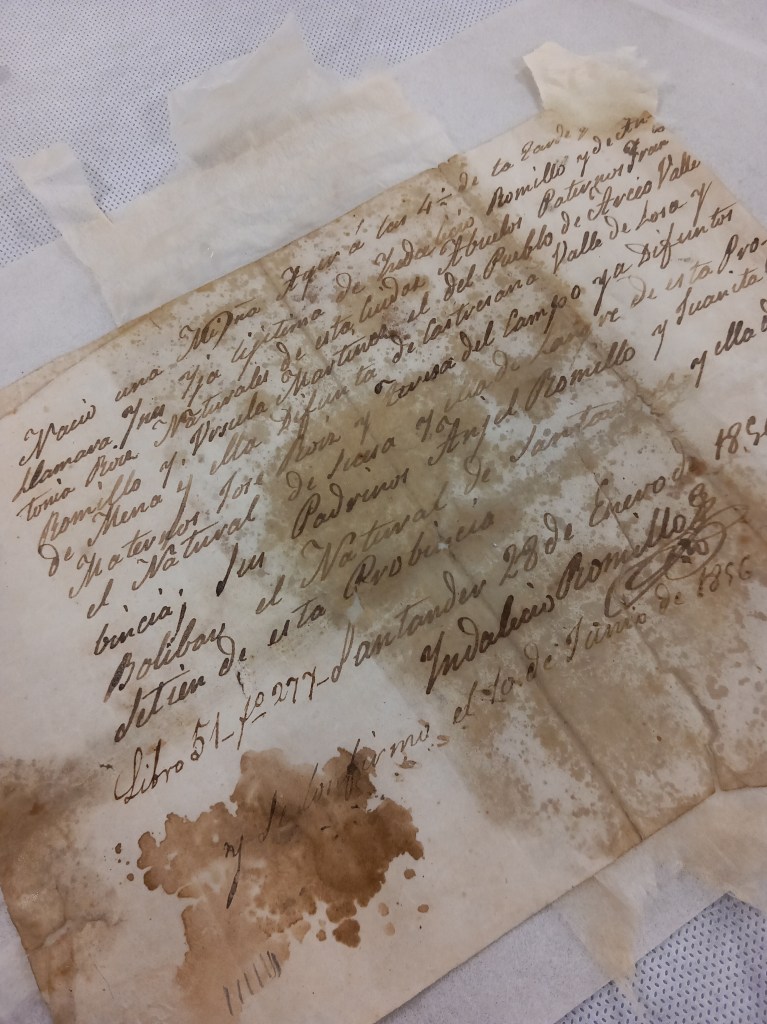 Nació una Niña Ayer á las 4 de la tarde y
llamara Ysa Yja lijitima de Yndalecio Romillo y de An
tonia Roiz Naturales de esta Ciudad Abuelos Paternos Fran
Romillo y Ursula Martinez el del Pueblo de Arceo Valle
de Mena y ella Difunta de Castresana Valle de Losa y
Maternos Jose Roiz y Teresa del Campo ya Difuntos
el Natural de y ella de de esta Pro-
bincia, sus Padrinos Anjel Romillo y Juanita
Bolibar el Natural de Santander y ella d
Setien de esta Probincia
Santander 28 de Enero de 1856
Yndalecio Romillo
Libro 51 fo 277
y se confirmo el 10 de Junio de 1856